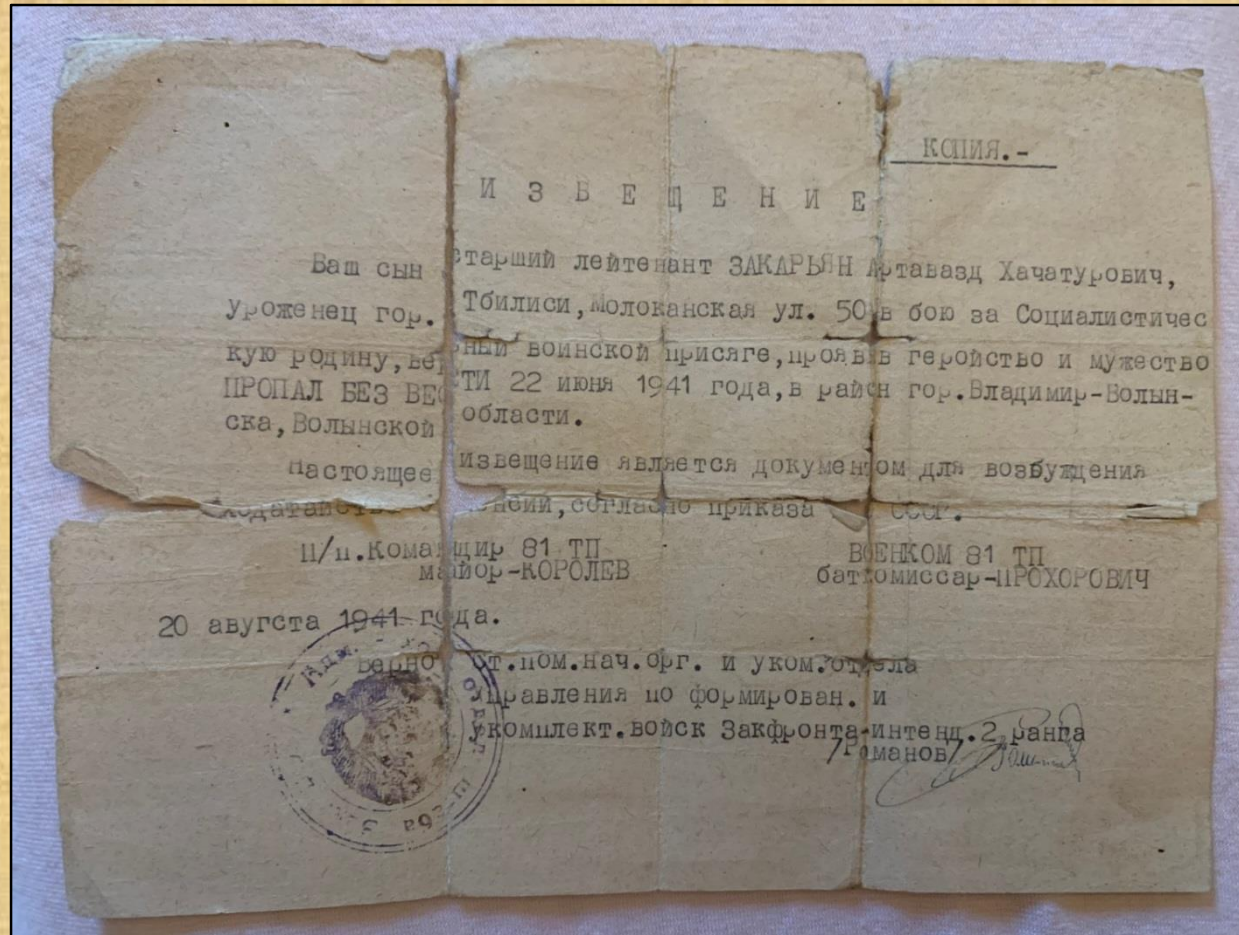 КОПИЯ.-
И З В Е Щ Е Н И Е
Ваш сын старший лейтенант ЗАКАРЬЯН Артавазд Хачатурович,
уроженец гор. Тбилиси, Молоканская ул. 50 в бою за Социалистичес
кую родину, верный воинской присяге, проявив геройство и мужество
ПРОПАЛ БЕЗ ВЕСТИ 22 июня 1941 года, в район гор. Владимир-Волын-
ска, Волынской области.
Настоящее извещение является документом для возбуждения
ходатайства пенсии, согласно приказа СССР.
П/п. Командир 81 ТП ВОЕНКОМ 81 ТП
майор-КОРОЛЕВ баткомиссар-ПРОХОРОВИЧ
20 авугста 1941 года.
Верно ст.пом.нач.орг. и уком.отдела
Управления по формирован. и
укомплект.войск Закфронта-интенд.2 ранга
/Романов/